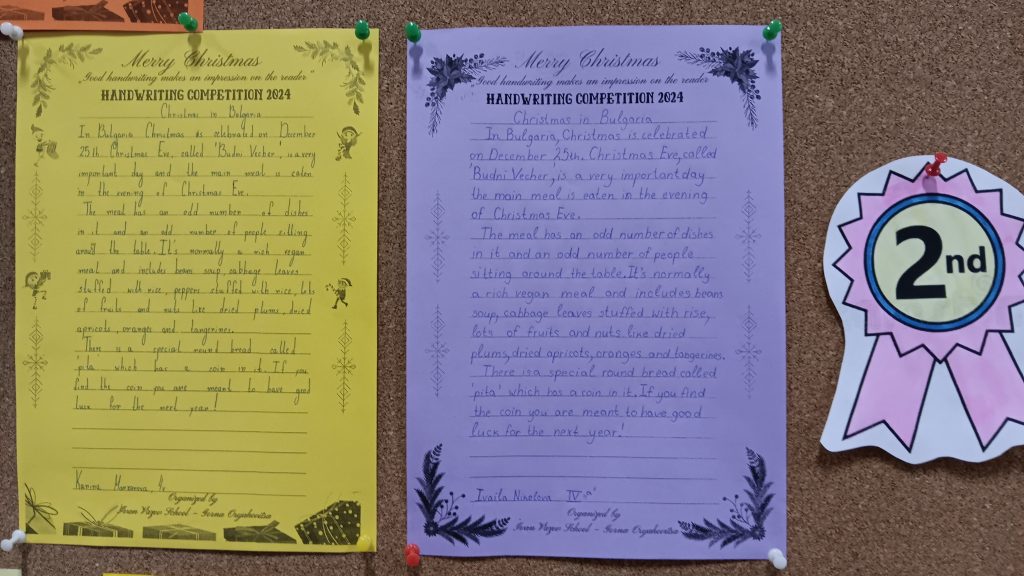 Merry Christmas
„Good handwriting makes an impression on the reader"
HANDWRITING COMPETITION 2024
Christmas in Bulgaria
In Bulgaria Christmas is celebrated on December
25th Christmas Eve, called 'Budni Vecher', is a very
important day and the main meal is eaten
in the evening of Christmas Eve.
The meal has an odd number of dishes
in it and an odd number of people sitting
around the table. It's normally a rich vegan
meal and includes beam soup, cabbage leaves
stuffed with rice, peppers stuffed with rice, lots
of fruits and nuts like dried plums, dried
apricots, oranges and tangerines.
There is a special round bread called
'pita' which has a coin in it. If you
find the coin you are meant to have good
luck for the next year!
Karina
Organized by
Ivan Vazov School - Gorna Oryahovitsa
Merry Christmas
„Good handwriting makes an impression on the reader
HANDWRITING COMPETITION 2024
Christmas in Bulgaria
In Bulgaria, Christmas is celebrated
on December 25th. Christmas Eve, called
'Budni Vecher', is a very important day
the main meal is eaten in the evening
of Christmas Eve.
The meal has an odd number of dishes
in it and an odd number of people
sitting around the table. It's normally
a rich vegan meal and includes beans
soup, cabbage leaves stuffed with rise,
lots of fruits and nuts like dried
plums, dried apricots, oranges and tangerines.
There is a special round bread called
'pita' which has a coin in it. If you find
the coin you are meant to have good
luck for the next year!
Ivaila IV
Organized by
Ivan Vazov School - Gorna Oryahovitsa
2nd